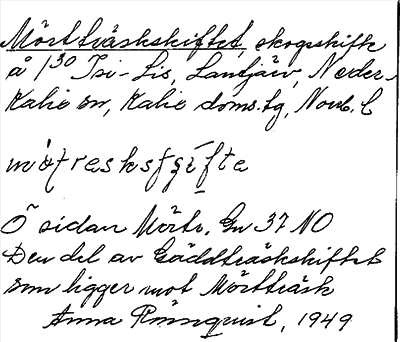 Mörtträskskiftet, skogsskifte
å 1³⁰ Isi-Lis, Lantjärv, Neder-
Kalix sn, Kalix doms.lg, Norrb. l
Ö sidan Mörttr. Gn 37 NO
Den del av Gäddträskskiftet
som ligger mot Mörtträsk
Anna Rönnquist, 1949